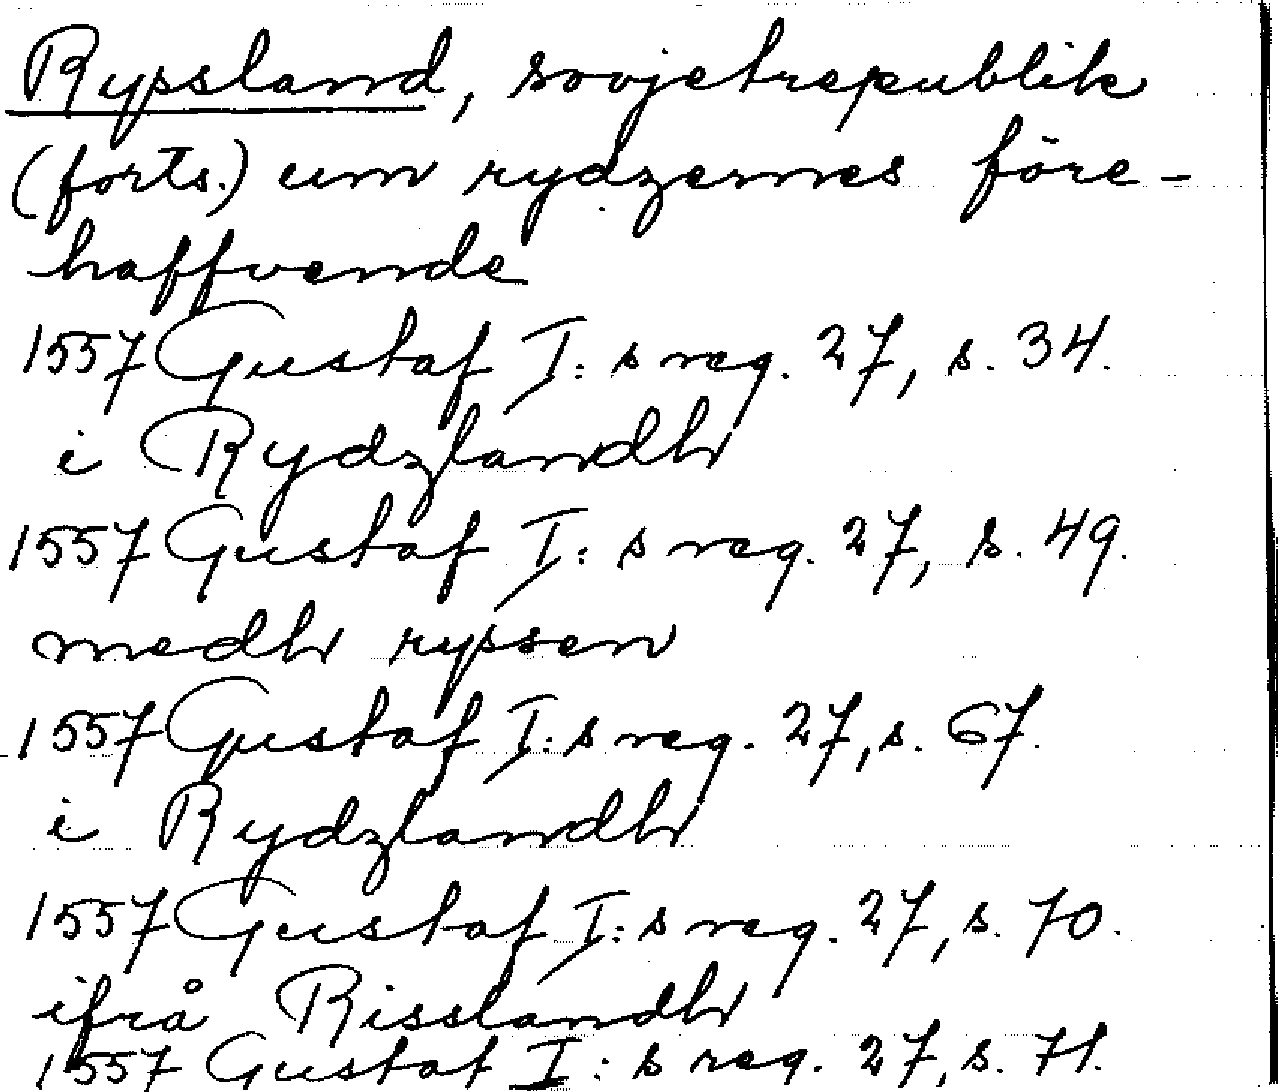 Rypsland, sovjetrepublik
(forts.) um rydzernes före-
haffvende
1557 Gustaf I: s reg. 27, s. 34.
i Rydzlandh
1557 Gustaf I: s reg. 27, s. 49.
medh rypsen
1557 Gustaf I: s reg. 27, s. 67.
i Rydzlandh
1557 Gustaf I: s reg. 27, s. 70.
ifrå Risslandh
1557 Gustaf I: s reg. 27, s. 71.